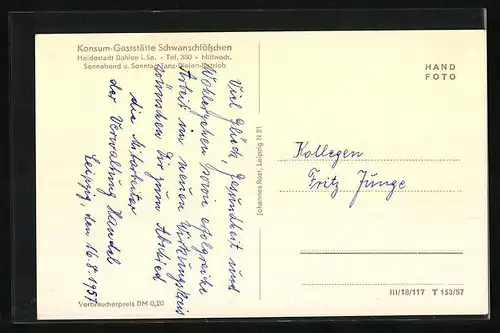 Konsum-Gaststätte Schwanschlößchen
Heidestadt Dahlen i. Sa. • Tel. 380 • Mittwoch,
Sonnabend u. Sonntag Tanz-Dielen-Betrieb
Viel Glück, Gesundheit und
Wohlergehen sowie erfolgreiche
Arbeit im neuen Wirkungskreis
wünschen Dir zum Abschied
die Mitarbeiter
der Verwaltung Handel
Leipzig, den 16.8.1957
Verbraucherpreis DM 0,20
Johannes Rost, Leipzig N 21
HAND
FOTO
Kollegen
Fritz Junge
III/18/117 T 153/57